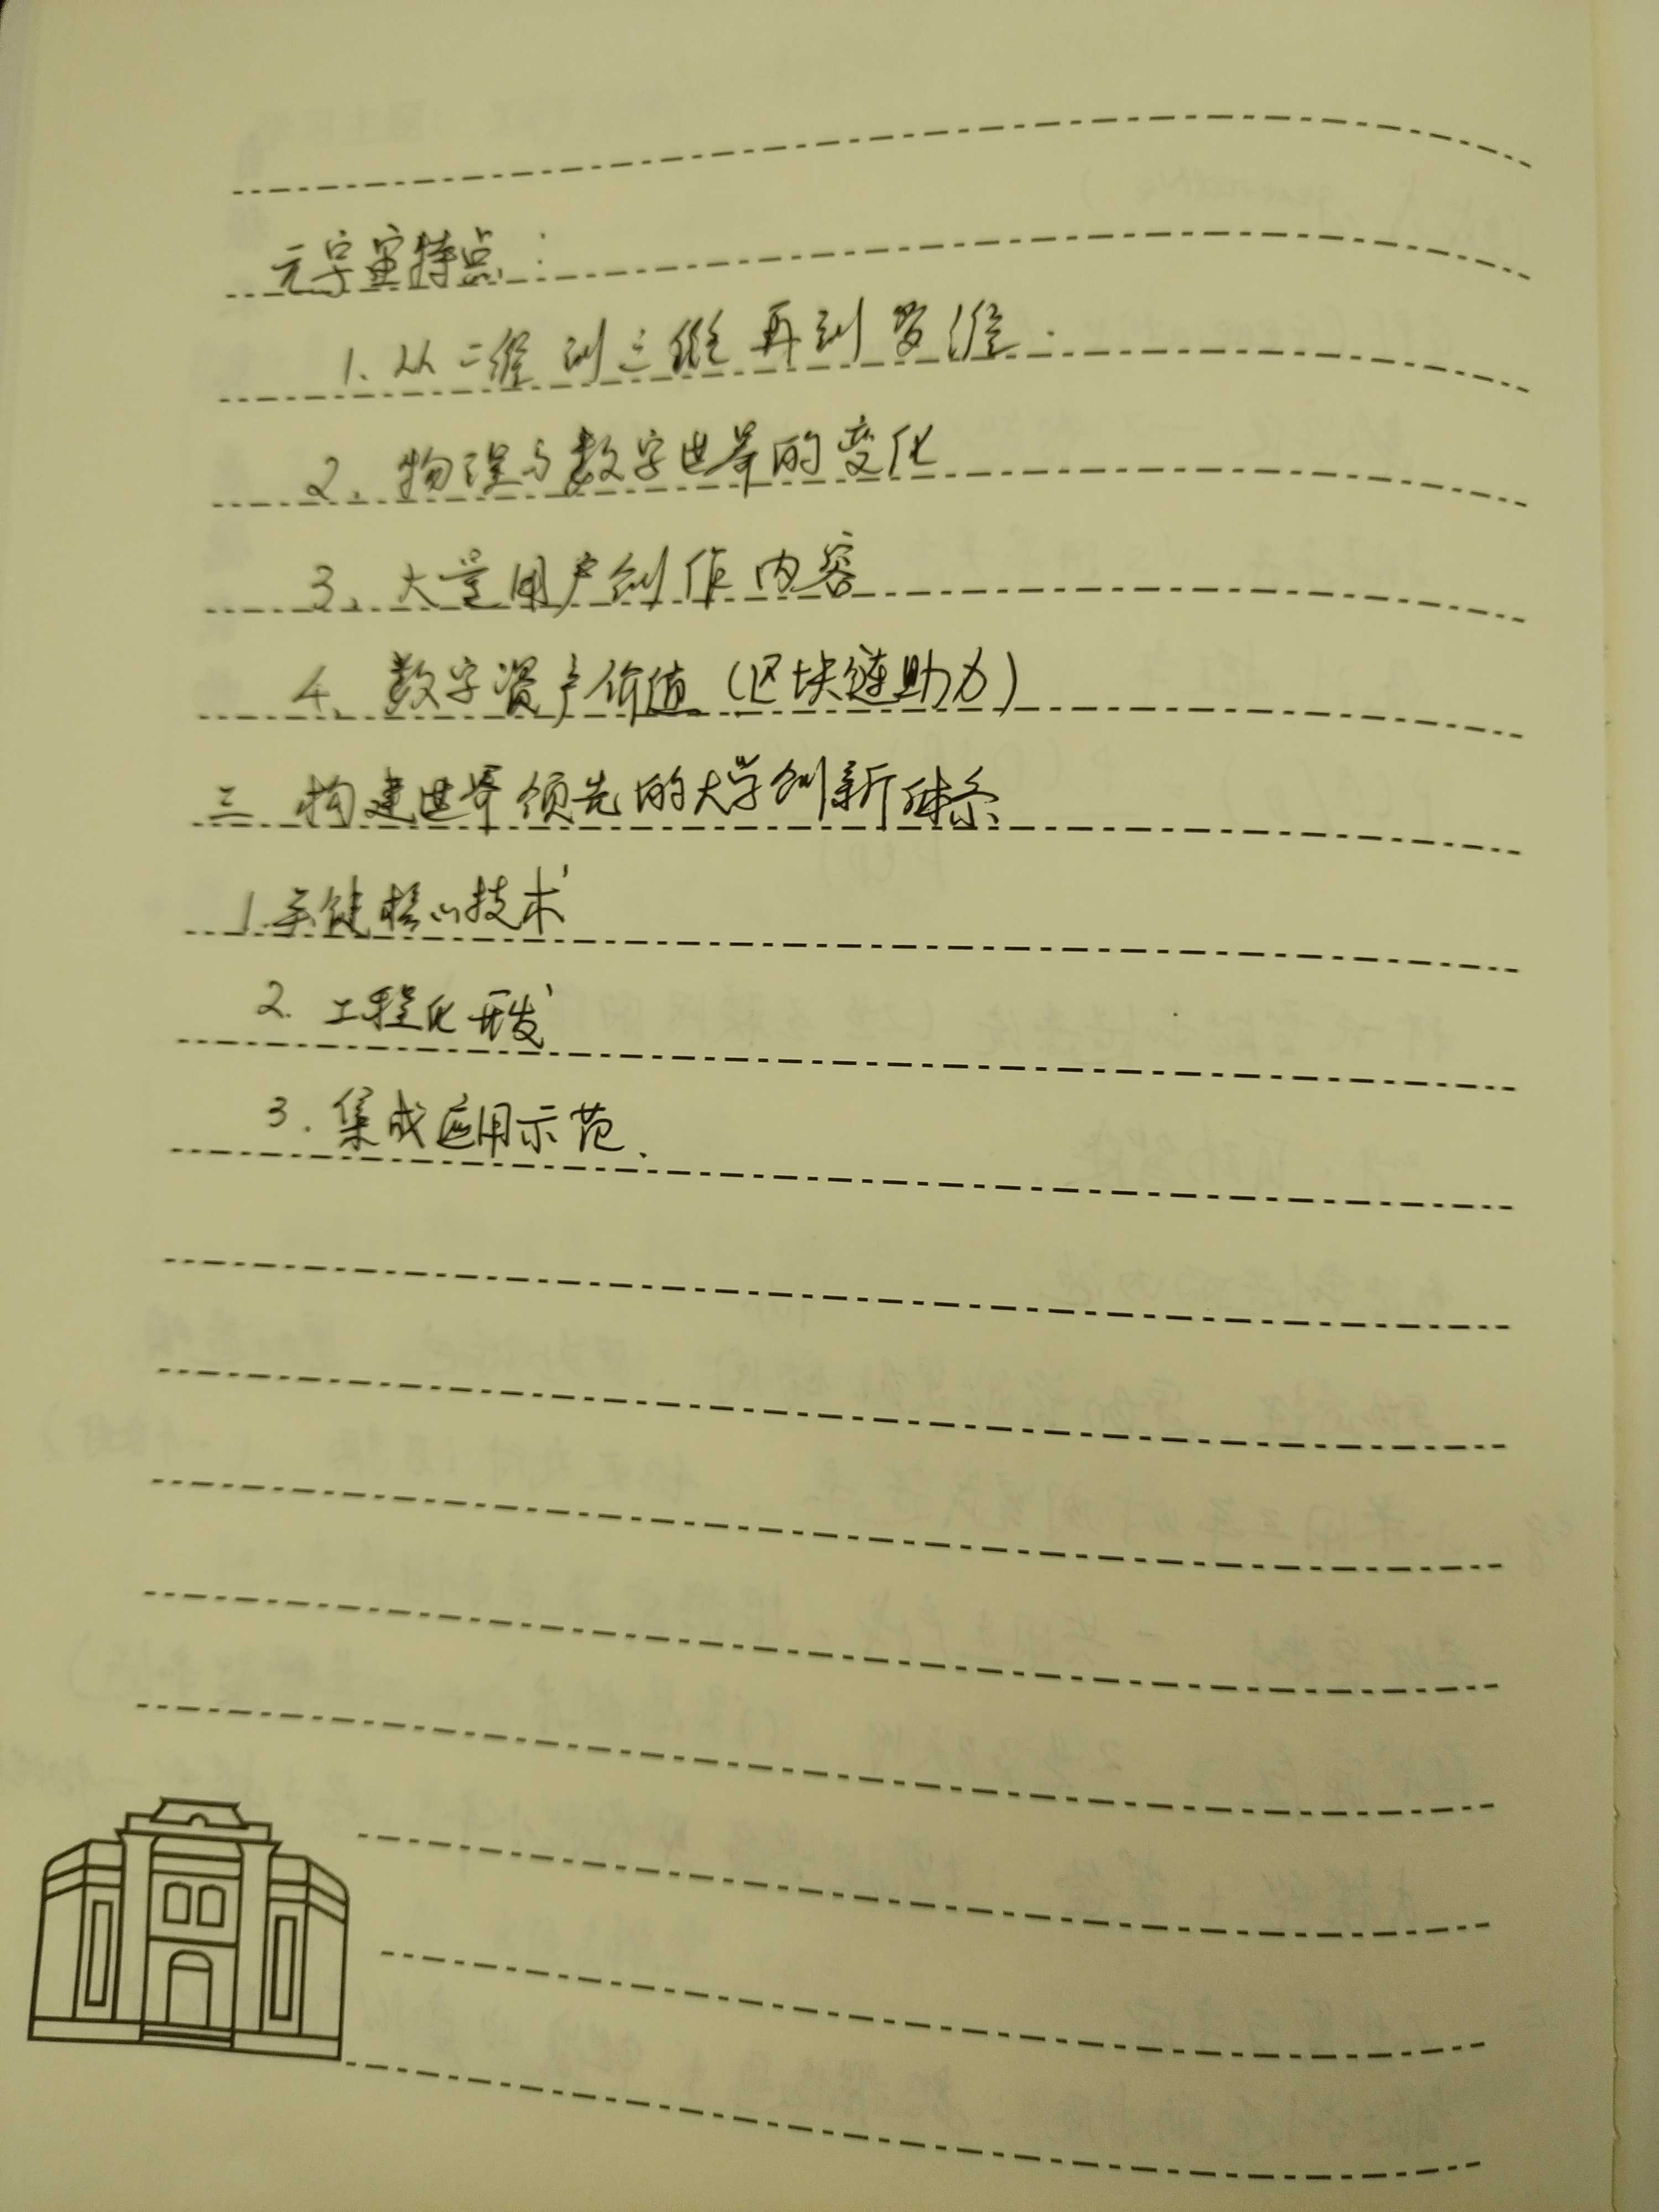 元宇宙特点:
1. 从二维到三维再到多维.
2. 物理与数字世界的变化
3. 大量用户创作内容
4. 数字资产价值 (区块链助力)
三 构建世界领先的大学创新体系
1.关键核心技术
2. 工程化开发
3. 集成应用示范.